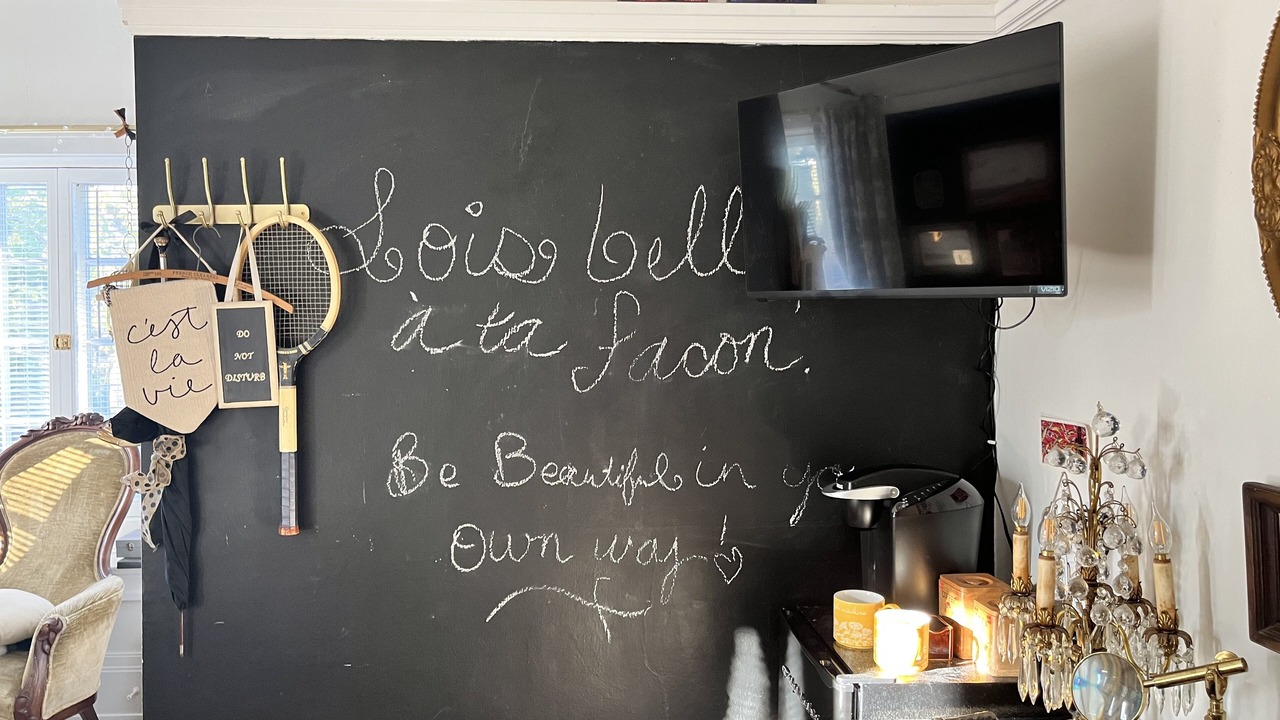 Sois bell
à ta facon!
Be Beautiful in yo
Own way!
c'est
la
vie
DO
NOT
DISTURB
VIZIO